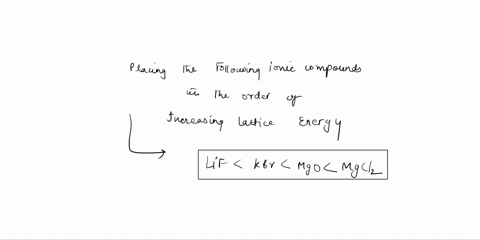 Placing the Following ionic compounds
in the order of
Increasing Lattice Energy
LiF < KBr < MgO < MgCl2